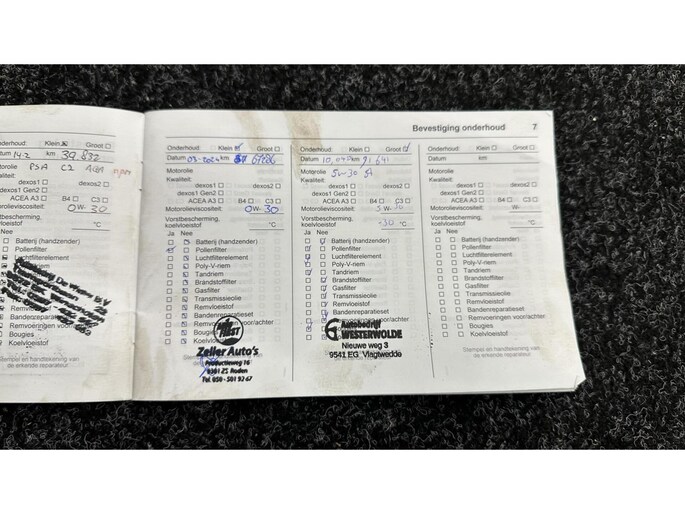 Bevestiging onderhoud 7
Onderhoud: Klein Groot
Datum 14-2 km 39.832
PSA C2
dexos1 dexos2
dexos1 Gen2
ACEA A3 B4 C3
Motorolieviscositeit: 0 W- 30
Vorstbescherming,
koelvloeistof °C
Ja Nee
Batterij (handzender)
Pollenfilter
Luchtfilterelement
Remvloeistof
Bandenreparatieset
Remvoeringen voor/achter
Bougies
Koelvloeistof
Stempel en handtekening van
de erkende reparateur.
Onderhoud: Klein Groot
Datum 03-2024 km
Motorolie
Kwaliteit:
dexos1 dexos2
dexos1 Gen2
ACEA A3 B4 C3
Motorolieviscositeit: 0 W- 30
Vorstbescherming,
koelvloeistof °C
Ja Nee
Batterij (handzender)
Pollenfilter
Luchtfilterelement
Poly-V-riem
Tandriem
Brandstoffilter
Gasfilter
Transmissieolie
Remvloeistof
Bandenreparatieset
Remvoeringen voor/achter
Bougies
Koelvloeistof
Zeller Auto's
Productieweg 16
9301 ZS Roden
Tel. 050 - 501 92 67
Onderhoud: Klein Groot
Datum km 91641
Motorolie 5w-30
Kwaliteit:
dexos1 dexos2
dexos1 Gen2
ACEA A3 B4 C3
Motorolieviscositeit: 5 W- 30
Vorstbescherming,
koelvloeistof -30 °C
Ja Nee
Batterij (handzender)
Pollenfilter
Luchtfilterelement
Poly-V-riem
Tandriem
Brandstoffilter
Gasfilter
Transmissieolie
Remvloeistof
Bandenreparatieset
Remvoeringen voor/achter
Autobedrijf
WESTERWOLDE
Nieuwe weg 3
9541 EG Vlagtwedde
Onderhoud: Klein Groot
Datum km
Motorolie
Kwaliteit:
dexos1 dexos2
dexos1 Gen2
ACEA A3 B4 C3
Motorolieviscositeit: W-
Vorstbescherming,
koelvloeistof °C
Ja Nee
Batterij (handzender)
Pollenfilter
Luchtfilterelement
Poly-V-riem
Tandriem
Brandstoffilter
Gasfilter
Transmissieolie
Remvloeistof
Bandenreparatieset
Remvoeringen voor/achter
Bougies
Koelvloeistof
Stempel en handtekening van
de erkende reparateur.